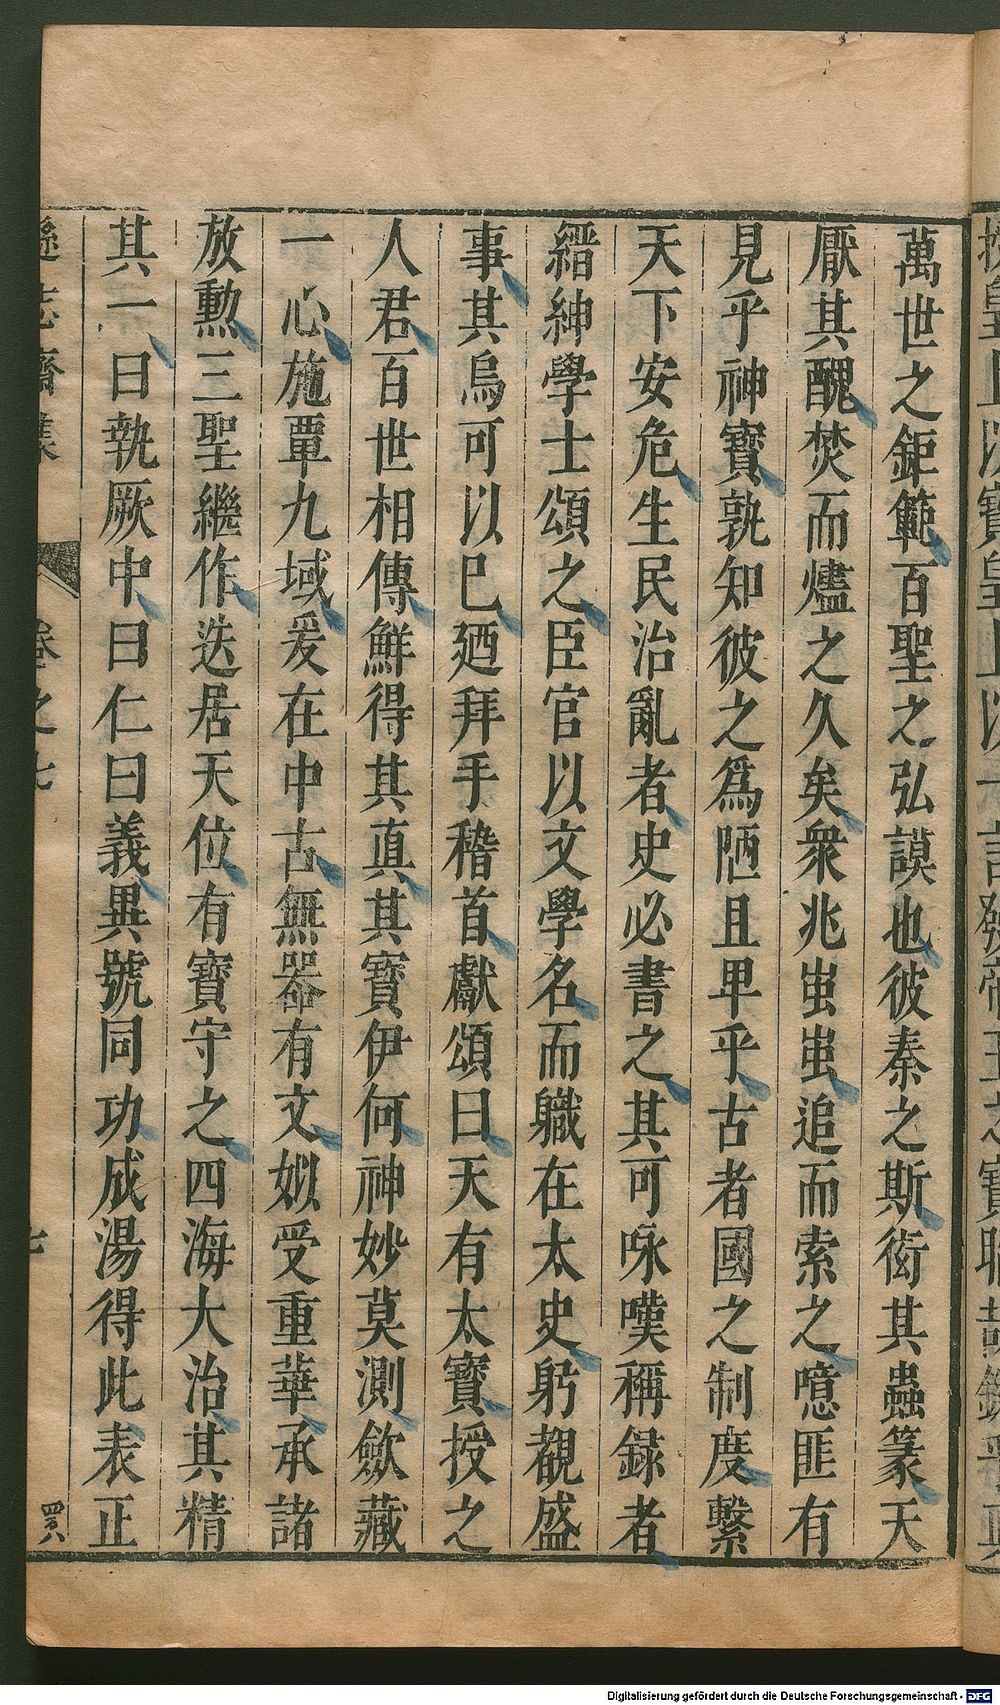 萬世之鉅範百聖之弘謨也彼秦之斯衒其蟲篆天
厭其醜焚而燼之久矣衆兆蚩蚩追而索之噫匪有
見乎神寶孰知彼之爲陋且卑乎古者國之制度繫
天下安危生民治亂者史必書之其可咏嘆稱録者
縉紳學士頌之臣官以文學名而職在太史躬覩盛
事其烏可以已廼拜手稽首獻頌曰天有太寶授之
人君百世相傳鮮得其眞其寶伊何神妙莫測斂藏
一心施覃九域爰在中古無器有文姒受重華承諸
放勲三聖繼作迭居天位有寶守之四海大治其精
其一曰執厥中曰仁曰義異號同功成湯得此表正
遜志齋集
卷之七
七
四百八
Digitalisierung gefördert durch die Deutsche Forschungsgemeinschaft - DFG